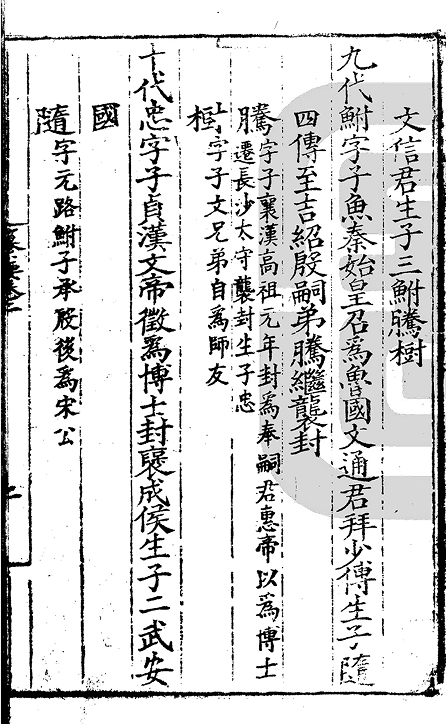 文信君生子三鮒騰樹
九代鮒字子魚秦始皇召為魯國文通君拜少傅生子隨
四傳至吉紹殷嗣弟騰繼襲封
騰字子襄漢高祖元年封為奉嗣君惠帝以為博士
遷長沙太守襲封生子忠
樹字子文兄弟自為師友
十代忠字子貞漢文帝徵為博士封襃成侯生子二武安
國
隨字元路鮒子承殷後為宋公